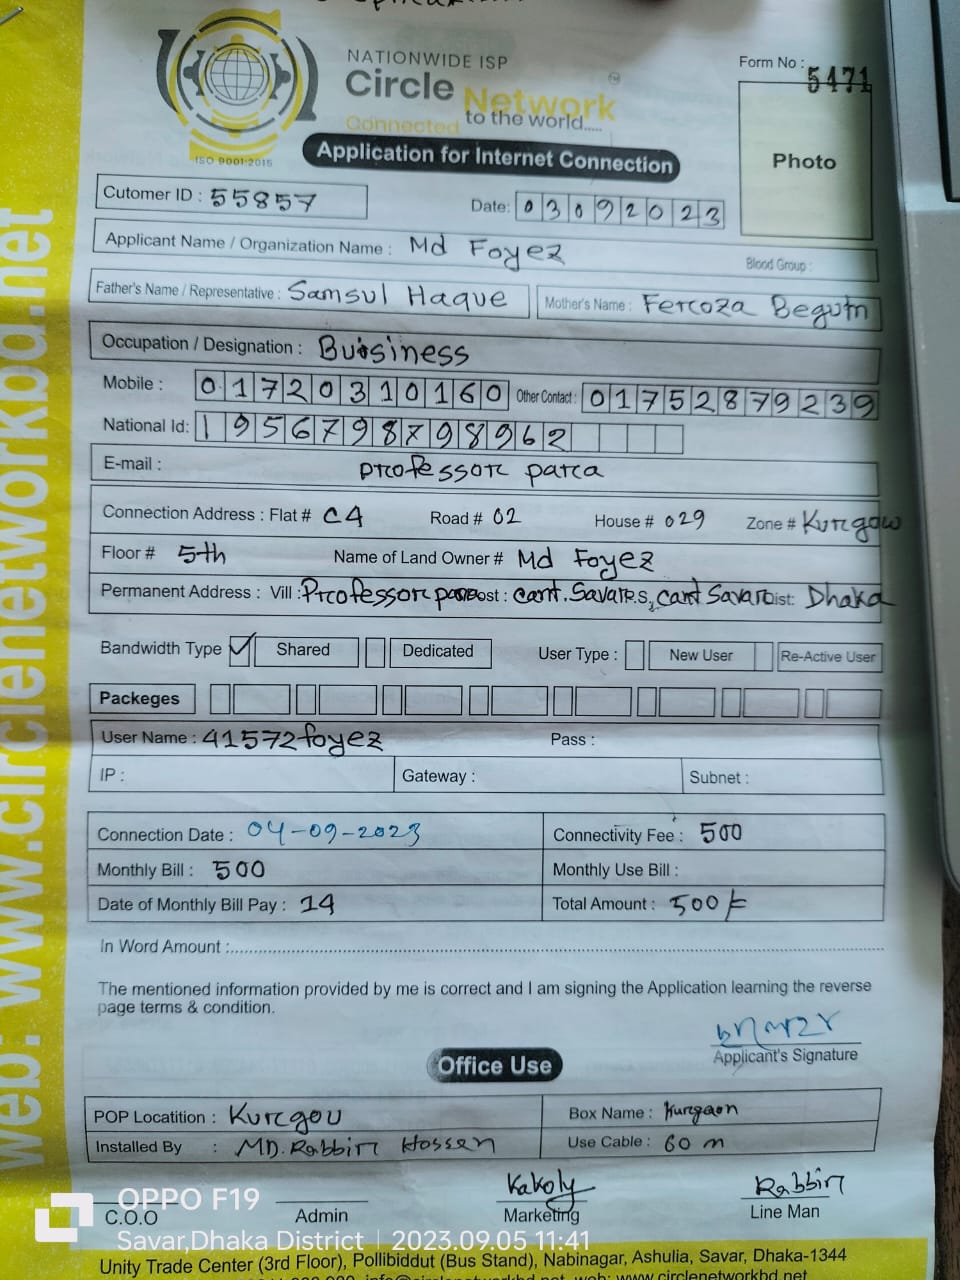 NATIONWIDE ISP
Circle Network
Connected to the world.....
ISO 9001:2015
Form No : 5471
Photo
Application for Internet Connection
Cutomer ID : 55857
Date: 03092023
Applicant Name / Organization Name : Md Foyez
Blood Group :
Father's Name / Representative : Samsul Haque
Mother's Name : Feroza Begum
Occupation / Designation : Buisiness
Mobile : 01720310160 Other Contact : 01752879239
National Id: 1956798798962
E-mail : professor para
Connection Address : Flat # C4 Road # 02 House # 029 Zone # Kurgow
Floor # 5th Name of Land Owner # Md Foyez
Permanent Address : Vill : Professor para Post : cant. Savar P.S, cant Savar Dist: Dhaka
Bandwidth Type ✓ Shared Dedicated User Type : New User Re-Active User
Packeges
User Name : 41572foyez Pass :
IP : Gateway : Subnet :
Connection Date : 04-09-2023 Connectivity Fee : 500
Monthly Bill : 500 Monthly Use Bill :
Date of Monthly Bill Pay : 14 Total Amount : 500/=
In Word Amount :
The mentioned information provided by me is correct and I am signing the Application learning the reverse
page terms & condition.
Applicant's Signature
Office Use
POP Locatition : Kurgou Box Name : Kurgaon
Installed By : MD. Rabbin Hossen Use Cable : 60 m
Kakoly Rabbin
C.O.O Admin Marketing Line Man
Unity Trade Center (3rd Floor), Pollibiddut (Bus Stand), Nabinagar, Ashulia, Savar, Dhaka-1344
web: www.circlenetworkbd.net
web: www.circlenetworkbd.net
OPPO F19
Savar,Dhaka District | 2023.09.05 11:41